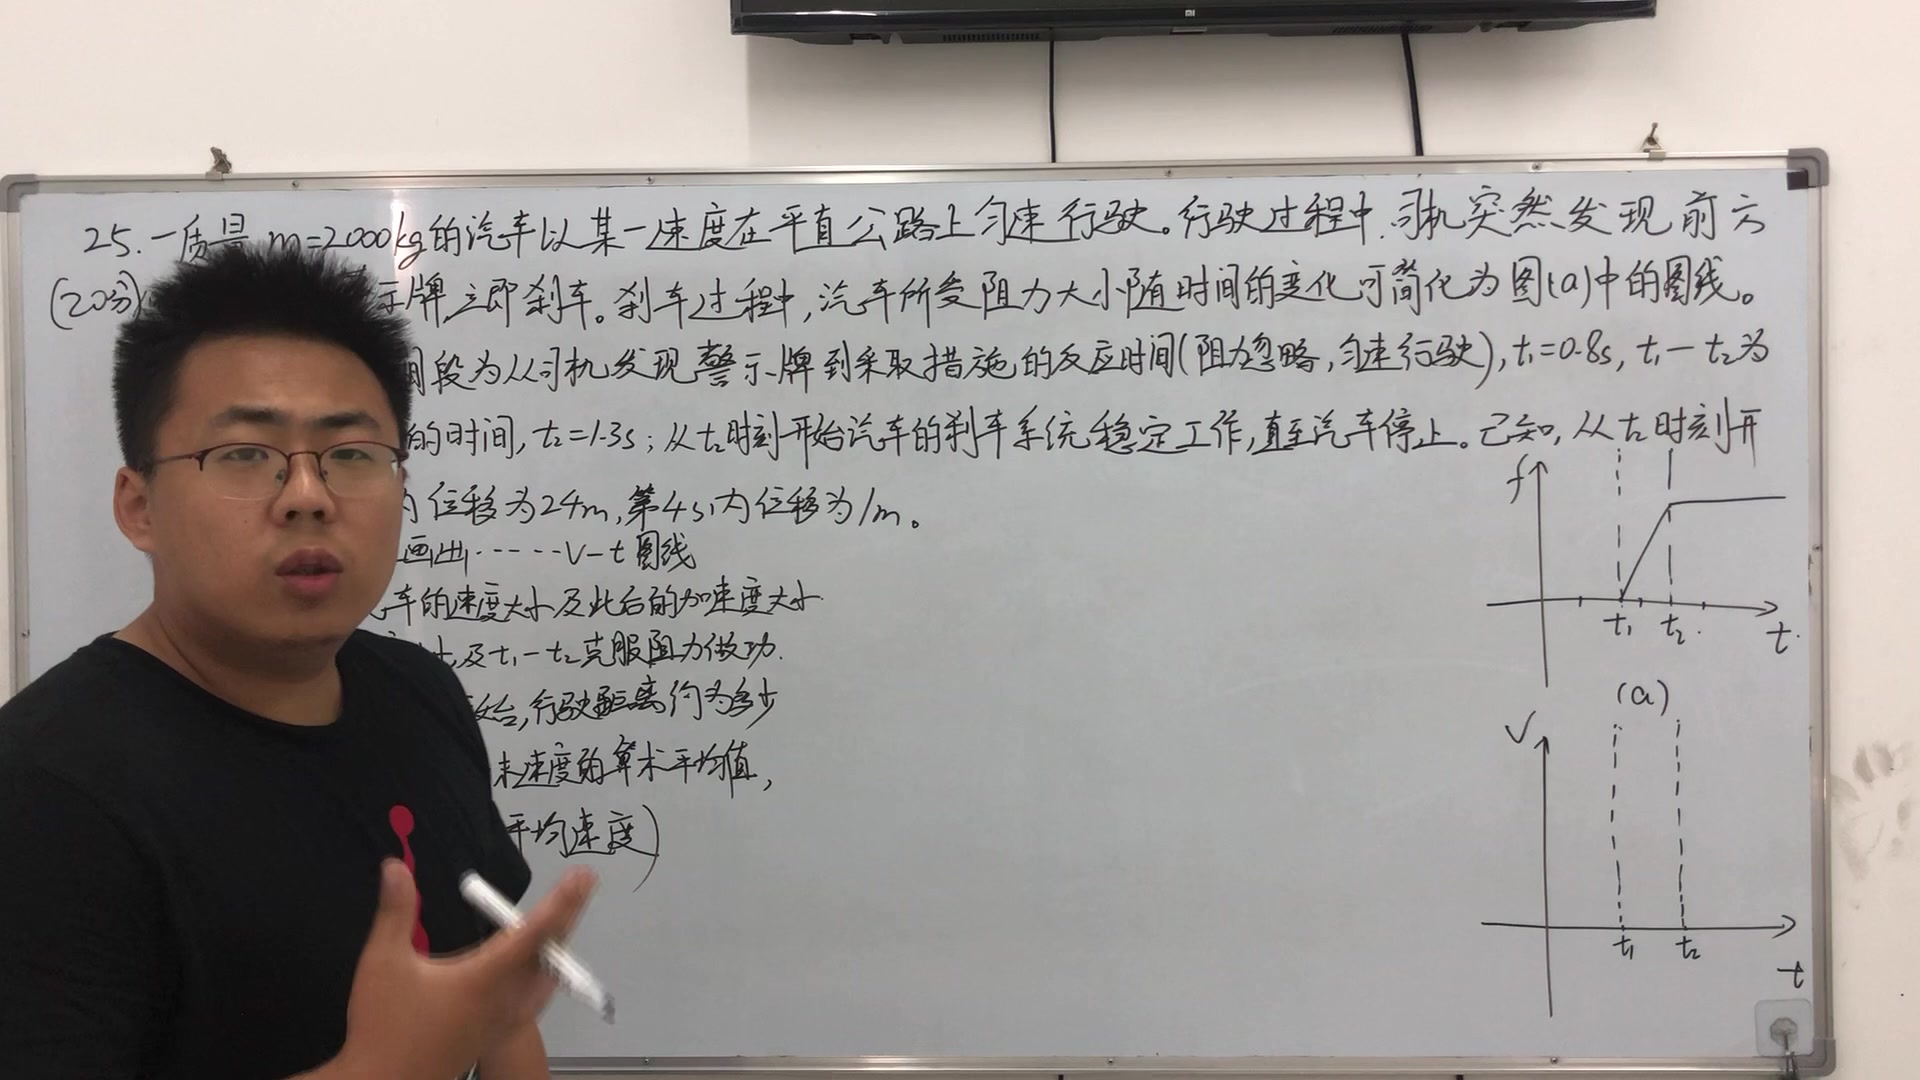 25.一质量 m=2000kg的汽车以某一速度在平直公路上匀速行驶。行驶过程中,司机突然发现前方
(20分) 示牌,立即刹车。刹车过程中,汽车所受阻力大小随时间的变化可简化为图(a)中的图线。
间段为从司机发现警示牌到采取措施的反应时间(阻力忽略,匀速行驶),t₁=0.8s,t₁-t₂为
的时间,t₂=1.3s;从t₂时刻开始汽车的刹车系统稳定工作,直至汽车停止。已知,从t₂时刻开
内位移为24m,第4s内位移为1m。
画出……v-t图线
车的速度大小及此后的加速度大小
及t₁-t₂克服阻力做功.
始,行驶距离约为多少
末速度的算术平均值,
平均速度)
f
t₁ t₂
t
(a)
v
t₁ t₂
t